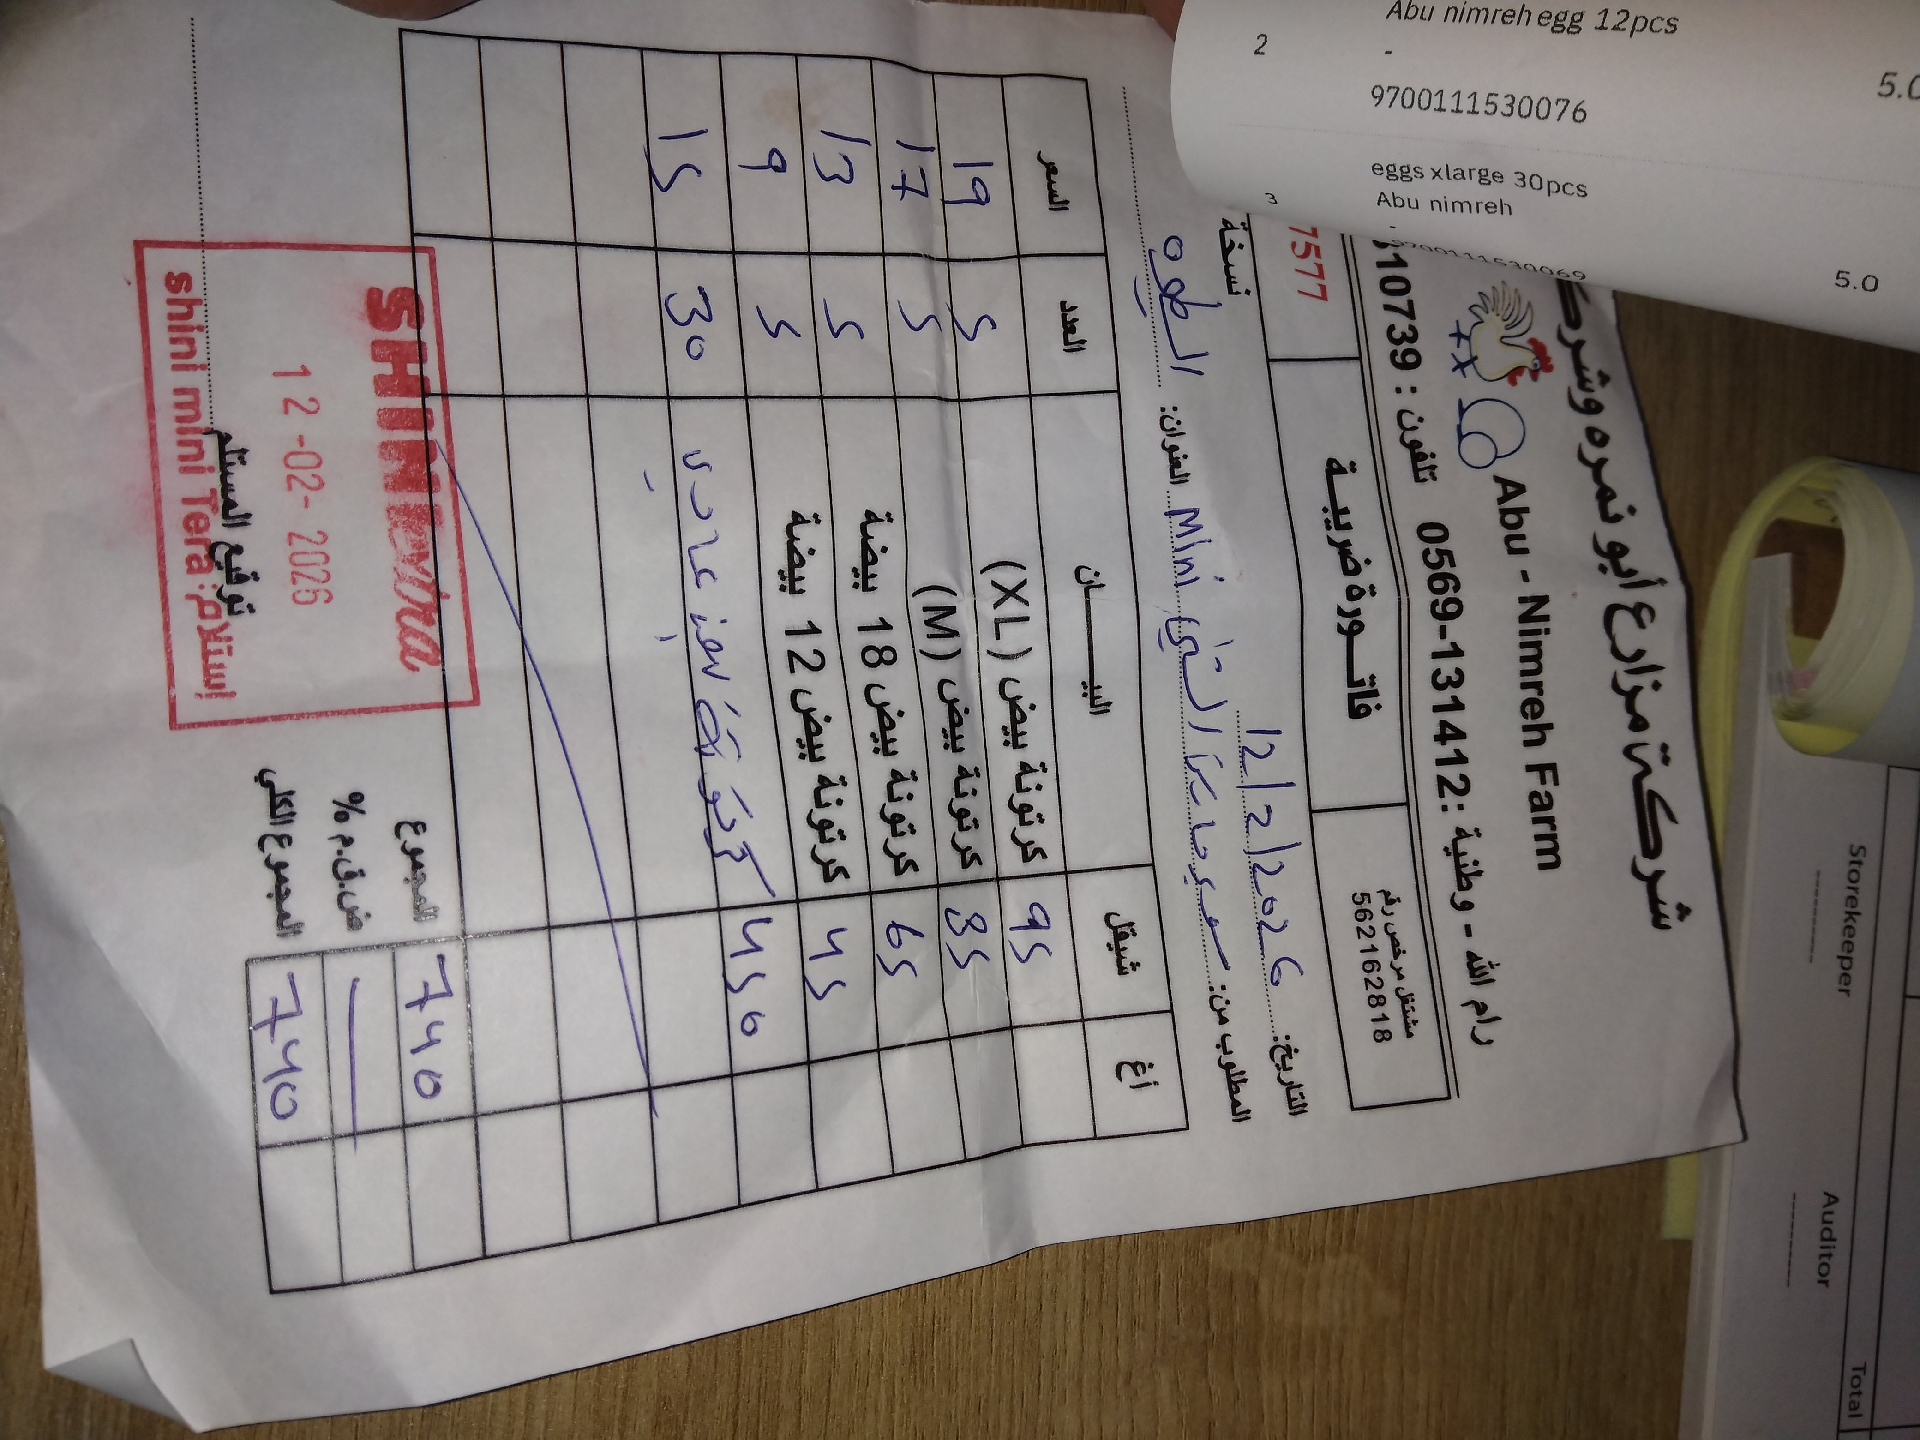 شركة مزارع أبو نمره وشرك
Abu - Nimreh Farm
رام الله - وطنية: 0569-131412 تلفون: 10739
مشتغل مرخص رقم
562162818
فاتـورة ضريبـة
7577
نسخة
التاريخ: 12/2/2026
المطلوب من: سوبر ماركت الشني Mini العنوان: الطيره
شيقل أغ البيـــان العدد السعر
95 كرتونة بيض (XL) 5 19
85 كرتونة بيض (M) 5 17
65 كرتونة بيض 18 بيضة 5 13
45 كرتونة بيض 12 بيضة 5 9
450 كرتونة بيض عادي 30 15
740 المجموع
ض.ق.م %
740 المجموع الكلي
توقيع المستلم
SHINI extra
12-02-2026
shini mini Tera :إستلام
Abu nimreh egg 12pcs
2 -
9700111530076
5.0
eggs xlarge 30pcs
Abu nimreh
3 -
9700111530069
5.0
Storekeeper
Auditor
Total